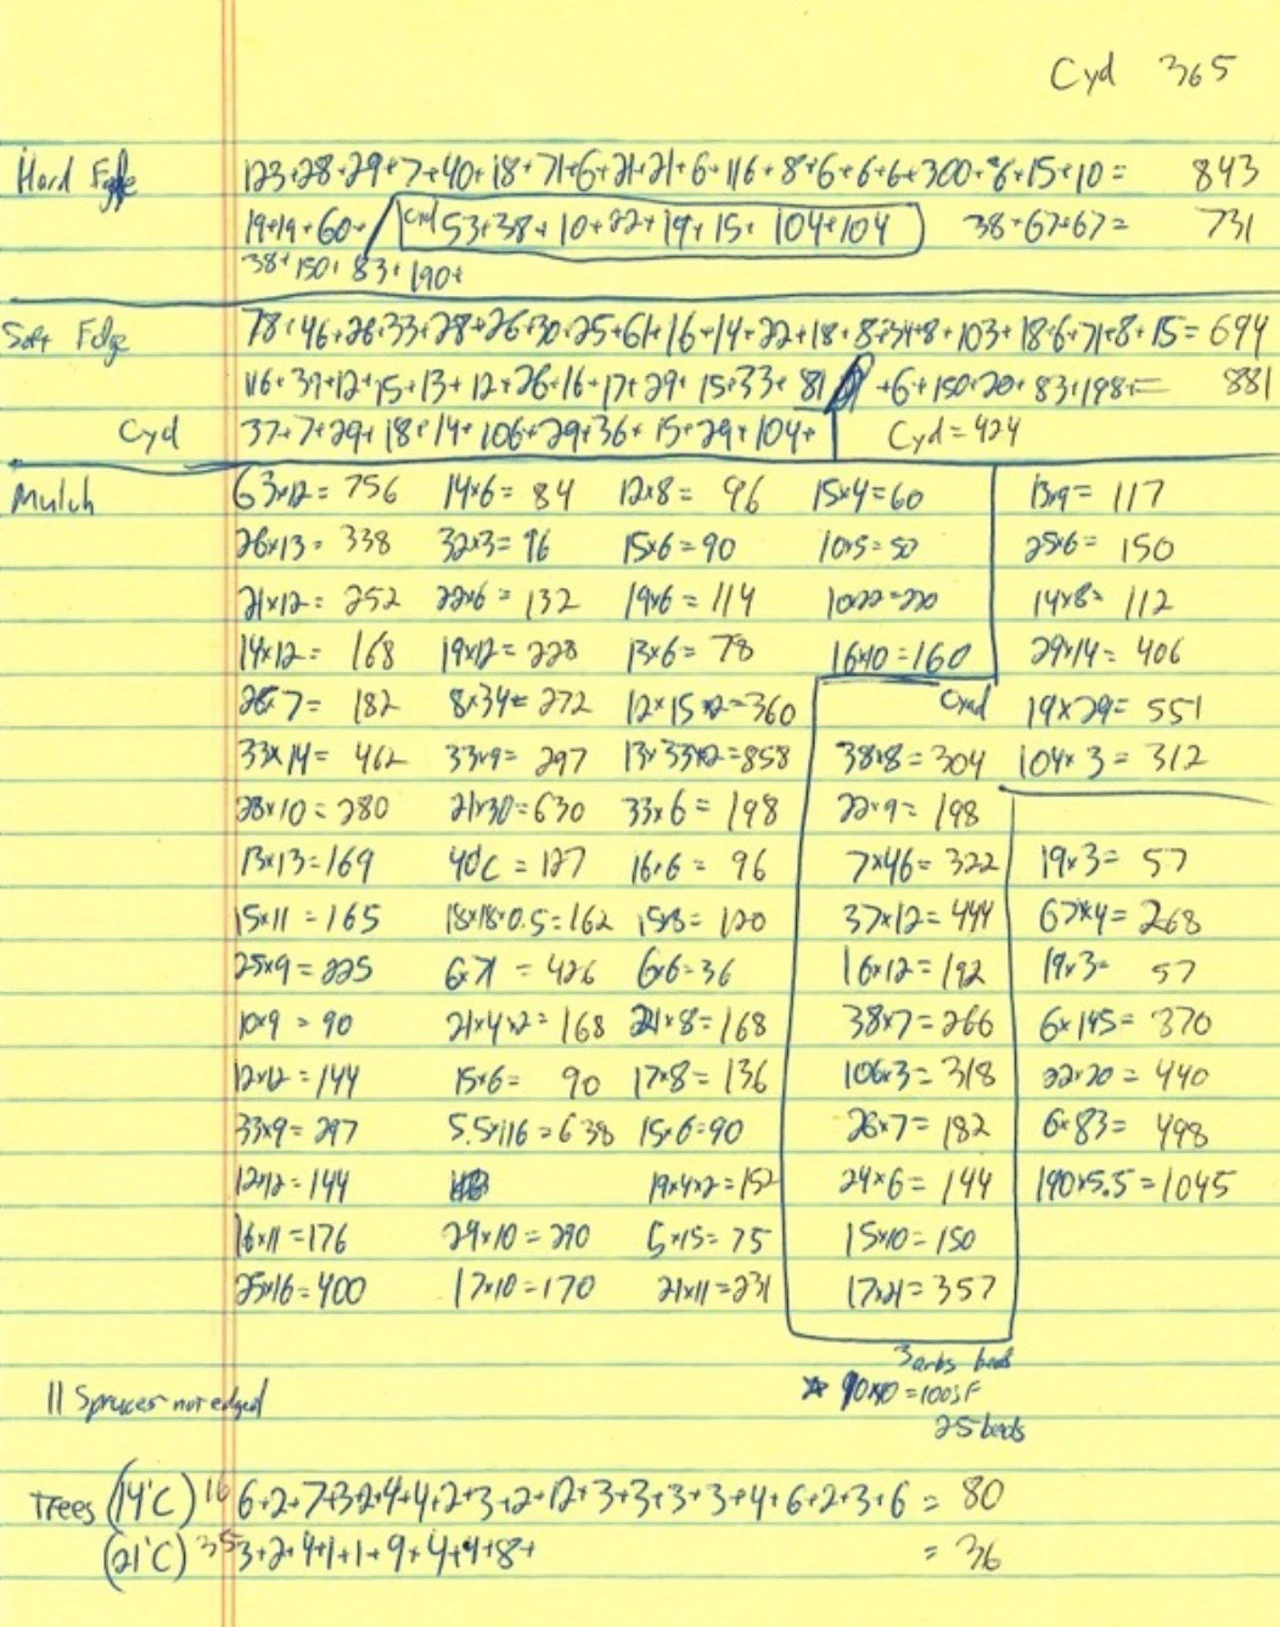 Cyd 365
Hard Edge 123+28+29+7+40+18+71+6+21+21+6+116+8+6+6+6+300+6+15+10= 843
19+19+60+ Cyd 53+38+10+22+19+15+104+104 38+67+67= 731
38+150+83+190+
Soft Edge 78+46+26+33+28+26+30+25+61+16+14+22+18+8+34+8+103+18+6+71+8+15=694
116+39+12+15+13+12+26+16+17+29+15+33+81 +6+150+20+83+198+= 881
Cyd 37+7+29+18+14+106+29+36+15+29+104+ Cyd=424
Mulch 63x12= 756 14x6= 84 12x8= 96 15x4=60 13x9= 117
26x13= 338 32x3= 96 15x6=90 10x5=50 25x6= 150
21x12= 252 22x6= 132 19x6=114 10x22=220 14x8= 112
14x12= 168 19x12=228 13x6=78 16x10=160 29x14= 406
26x7= 182 8x34=272 12x15x2=360 Cyd 19x29= 551
33x14= 462 33x9= 297 13x33x2=858 38x8=304 104x3=312
28x10=280 21x30=630 33x6=198 22x9=198
13x13=169 40'C=127 16x6= 96 7x46=322 19x3= 57
15x11=165 18x18x0.5=162 15x8=120 37x12=444 67x4=268
25x9=225 6x71=426 6x6=36 16x12=192 19x3= 57
10x9=90 21x4x2=168 21x8=168 38x7=266 6x145=870
12x12=144 15x6= 90 17x8=136 106x3=318 22x20=440
33x9=297 5.5x116=638 15x6=90 26x7=182 6x83= 498
12x12=144 19x4x2=152 24x6=144 190x5.5=1045
16x11=176 29x10=290 5x15=75 15x10=150
25x16=400 17x10=170 21x11=231 17x21=357
3 arbs beds
10x10=100SF
11 Spruces not edged
25 beds
Trees (14'C) 16 6+2+7+3+2+4+4+2+3+2+12+3+3+3+3+4+6+2+3+6 = 80
(21'C) 35 3+2+4+1+1+9+4+4+8+ = 36